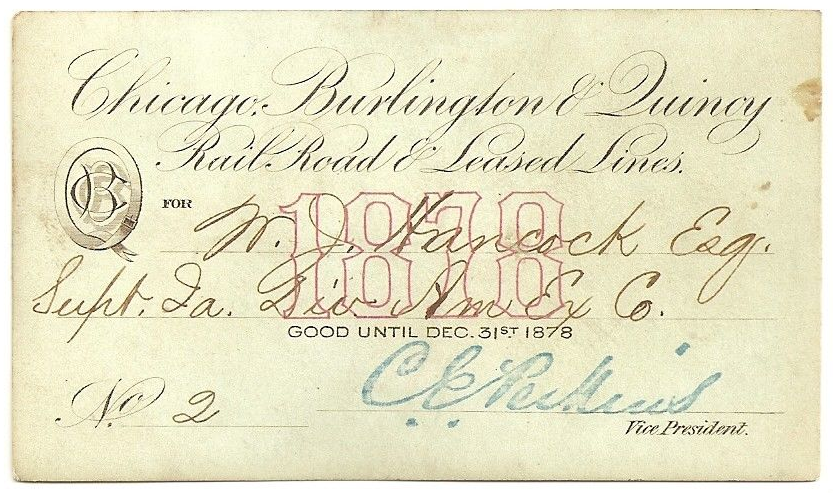 Chicago, Burlington & Quincy
Rail Road & Leased Lines.
CBQ
1878
FOR W. J. Hancock Esq.
Supt. Ia. Div. Am Ex Co.
GOOD UNTIL DEC. 31ST 1878
No. 2
C E Perkins
Vice President.